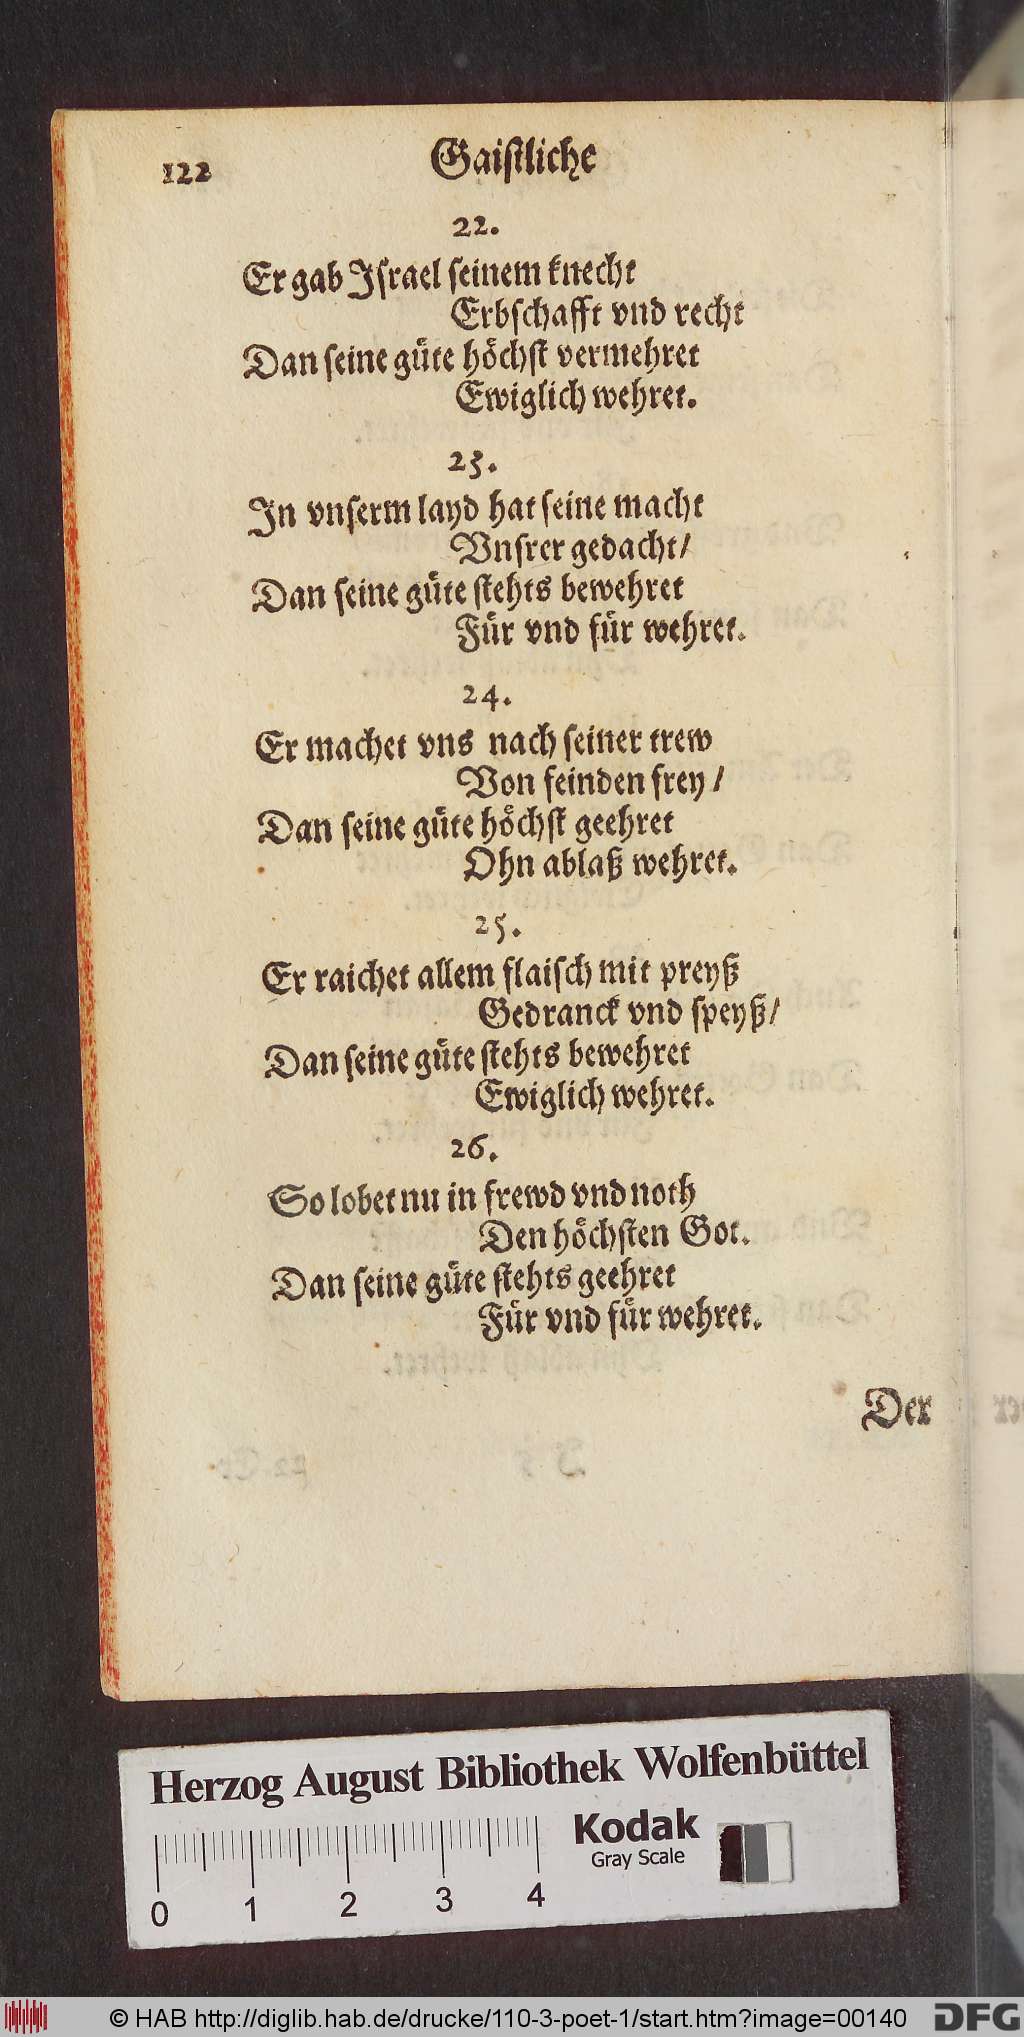 122 Gaistliche
22.
Er gab Israel seinem knecht
Erbschafft vnd recht
Dan seine güte höchst vermehret
Ewiglich wehret.
23.
In vnserm layd hat seine macht
Vnsrer gedacht/
Dan seine güte stehts bewehret
Für vnd für wehret.
24.
Er machet vns nach seiner trew
Von feinden frey/
Dan seine güte höchst geehret
Ohn ablaß wehret.
25.
Er raichet allem flaisch mit preyß
Gedranck vnd speyß/
Dan seine güte stehts bewehret
Ewiglich wehret.
26.
So lobet nu in frewd vnd noth
Den höchsten Got.
Dan seine güte stehts geehret
Für vnd für wehret.
Der
Herzog August Bibliothek Wolfenbüttel
Kodak
Gray Scale
0 1 2 3 4
© HAB http://diglib.hab.de/drucke/110-3-poet-1/start.htm?image=00140
DFG